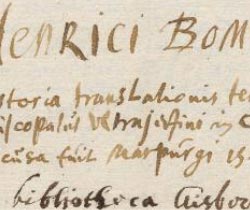 HENRICI BOM
storia translationis te
iscopatus Vltrajectini in C
cusa fuit Marpurgi 15
bibliotheca Gisb